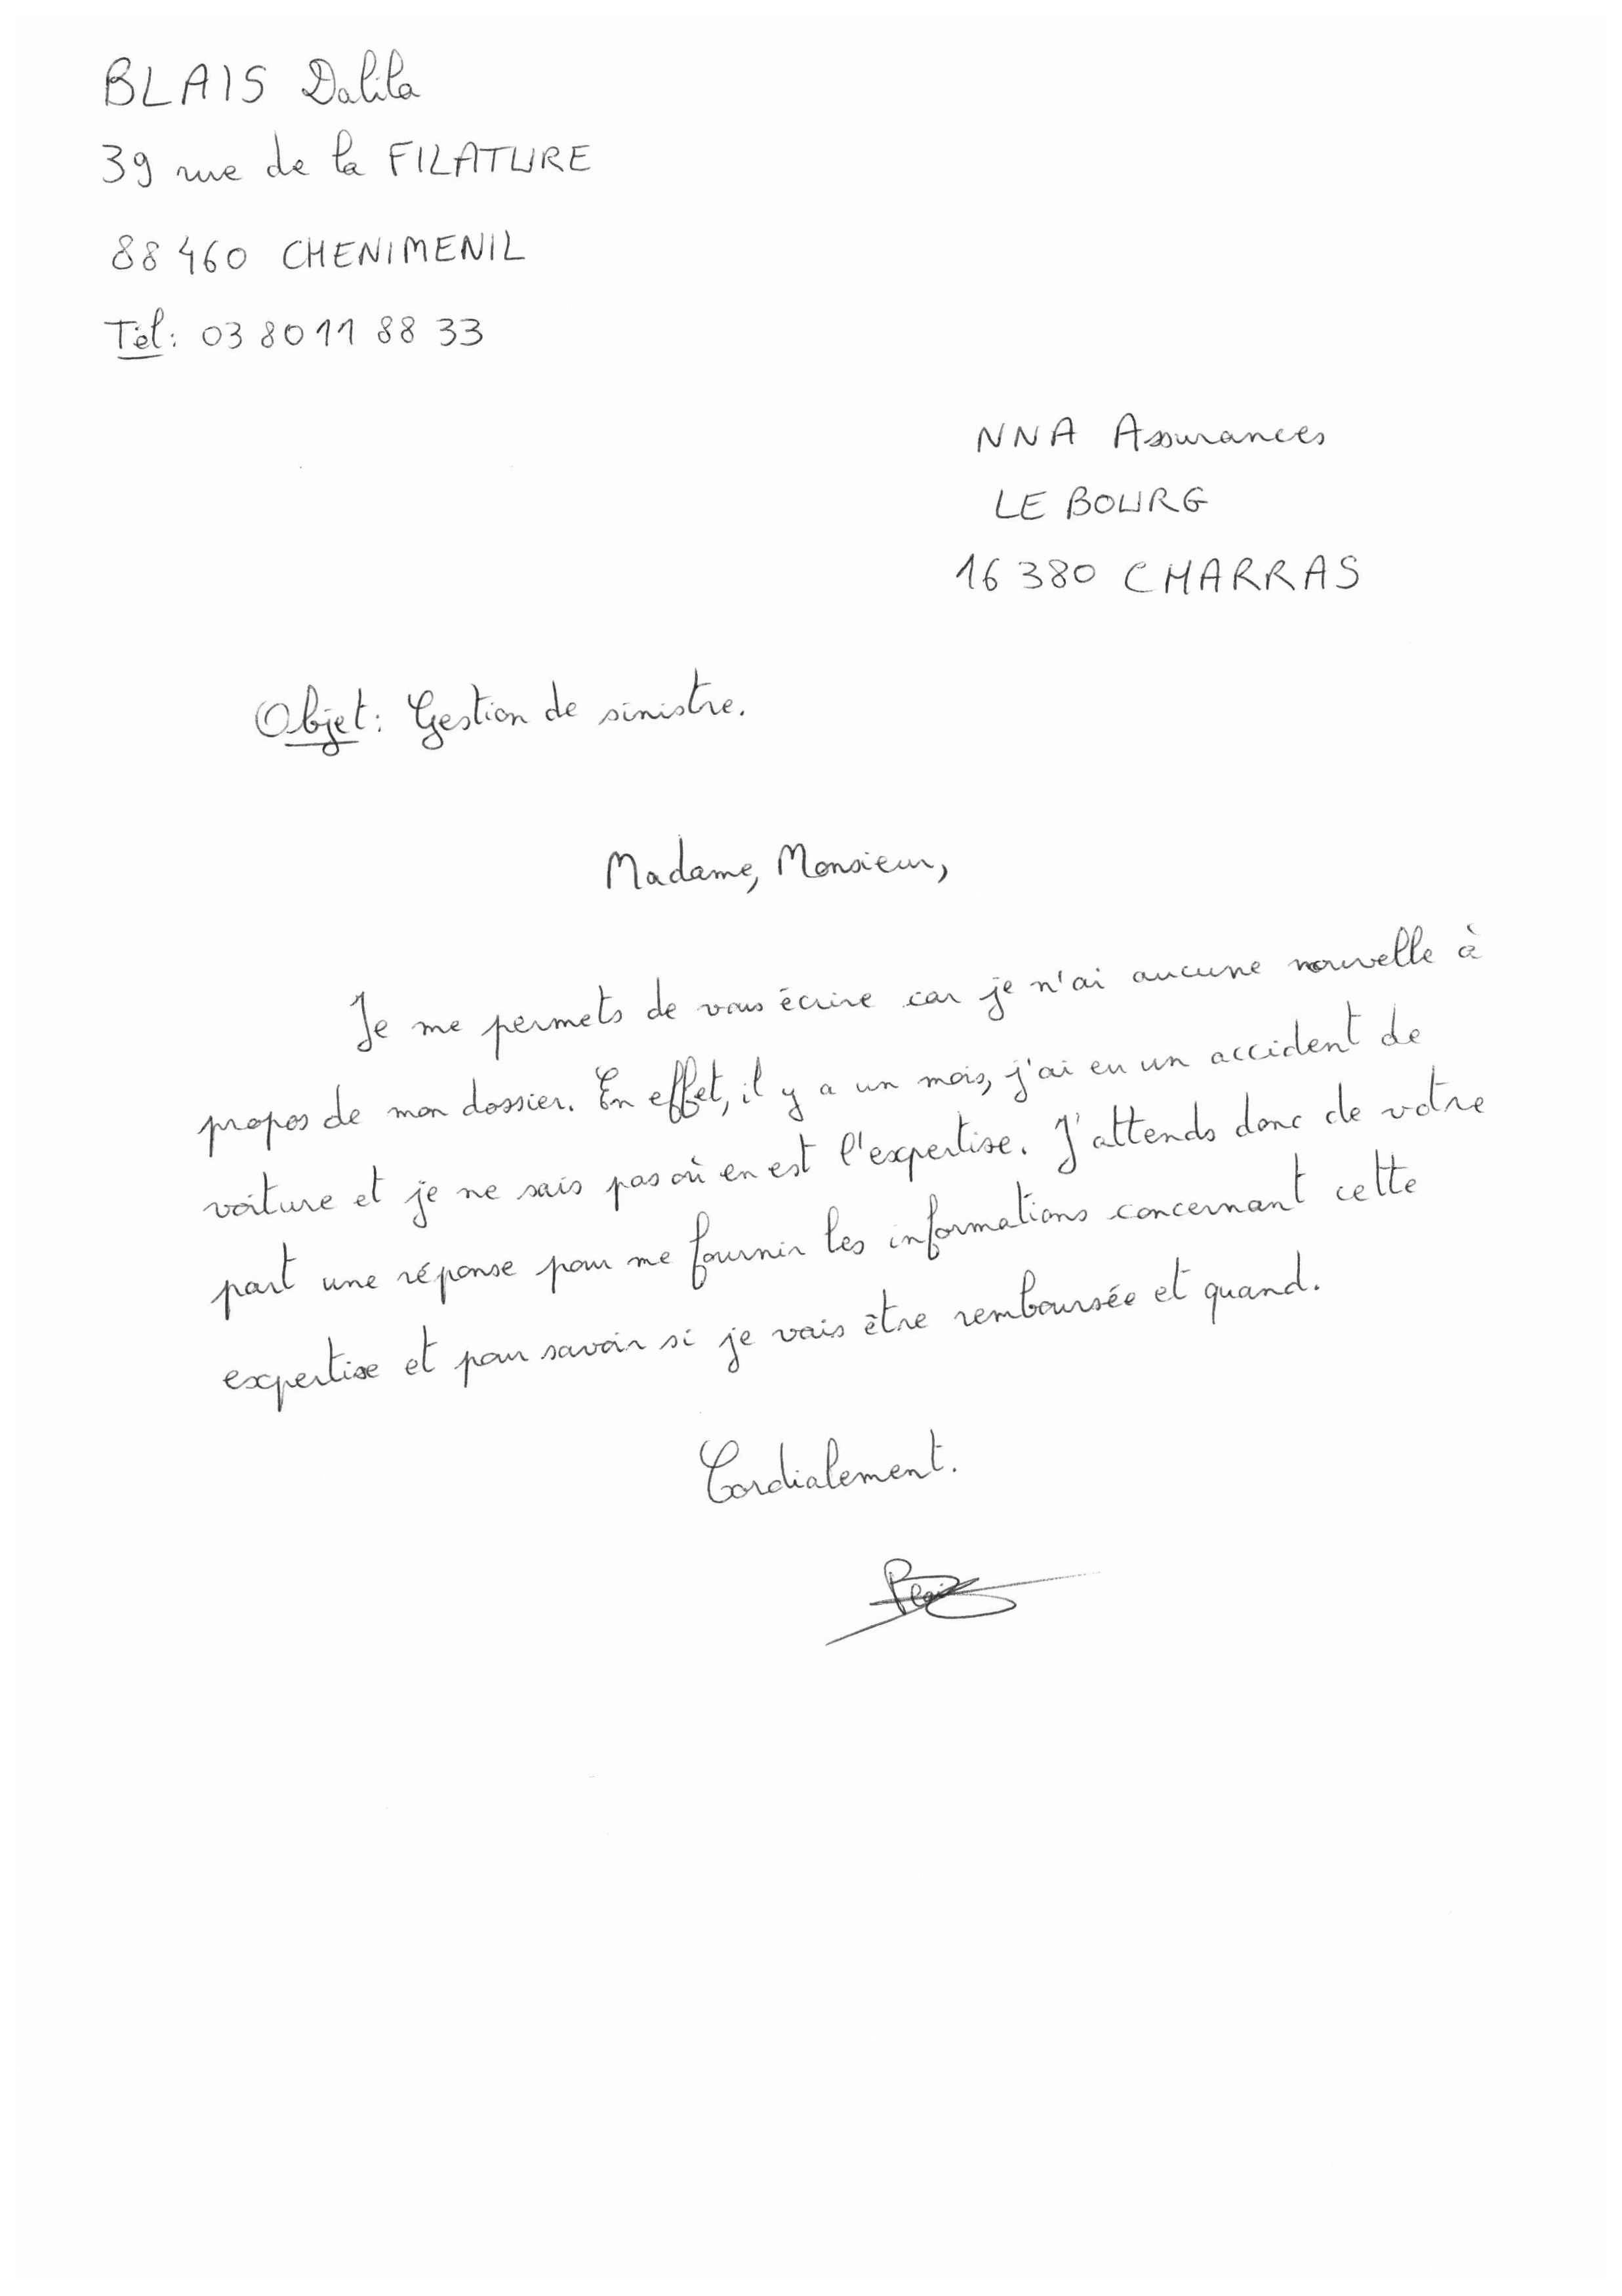 BLAIS Dalila
39 rue de la FILATURE
88460 CHENIMENIL
Tél: 03 80 11 88 33
NNA Assurances
LE BOURG
16380 CHARRAS
Objet: Gestion de sinistre.
Madame, Monsieur,
Je me permets de vous écrire car je n'ai aucune nouvelle à
propos de mon dossier. En effet, il y a un mois, j'ai eu un accident de
voiture et je ne sais pas où en est l'expertise. J'attends donc de votre
part une réponse pour me fournir les informations concernant cette
expertise et pour savoir si je vais être remboursée et quand.
Cordialement.
Blais